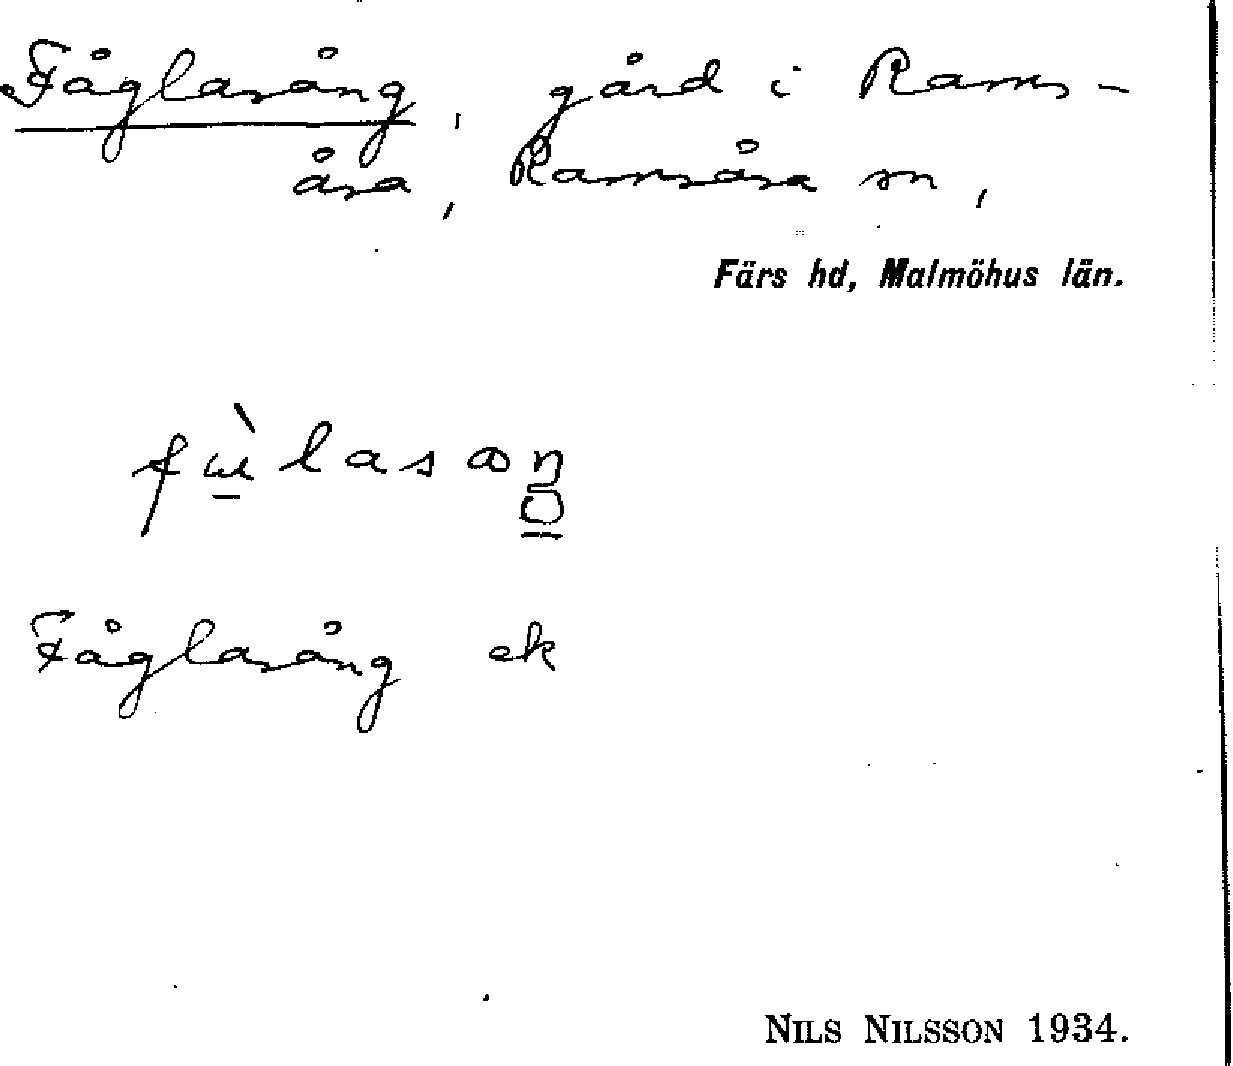 Fåglasång, gård i Rams-
åsa, Ramsåsa sn,
Färs hd, Malmöhus län.
Fåglasång ek
NILS NILSSON 1934.